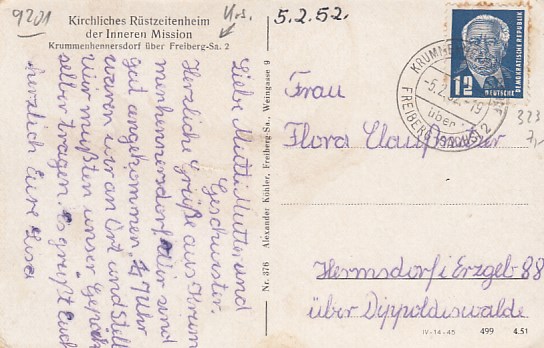 9201
Kirchliches Rüstzeitenheim
der Inneren Mission
Krummenhennersdorf über Freiberg-Sa. 2
5.2.52.
Liebe Mutti, Mutter und
Geschwister.
Herzliche Grüße aus Krum
menhennersdorf. Wir sind
gut angekommen. 4 Uhr
waren wir an Ort und Stelle
Wir mußten unser Gepäck
selber tragen. Es grüßt Euch
herzlich Eure Lisa
Nr. 376 Alexander Köhler, Freiberg-Sa., Weingasse 9
DEUTSCHE
DEMOKRATISCHE REPUBLIK
12
-5.2.52.-19
über
FREIBERG (SACHS) 2
323
Frau
Flora
Hermsdorf i Erzgeb 88
über Dippoldiswalde
IV-14-45 499 4.51